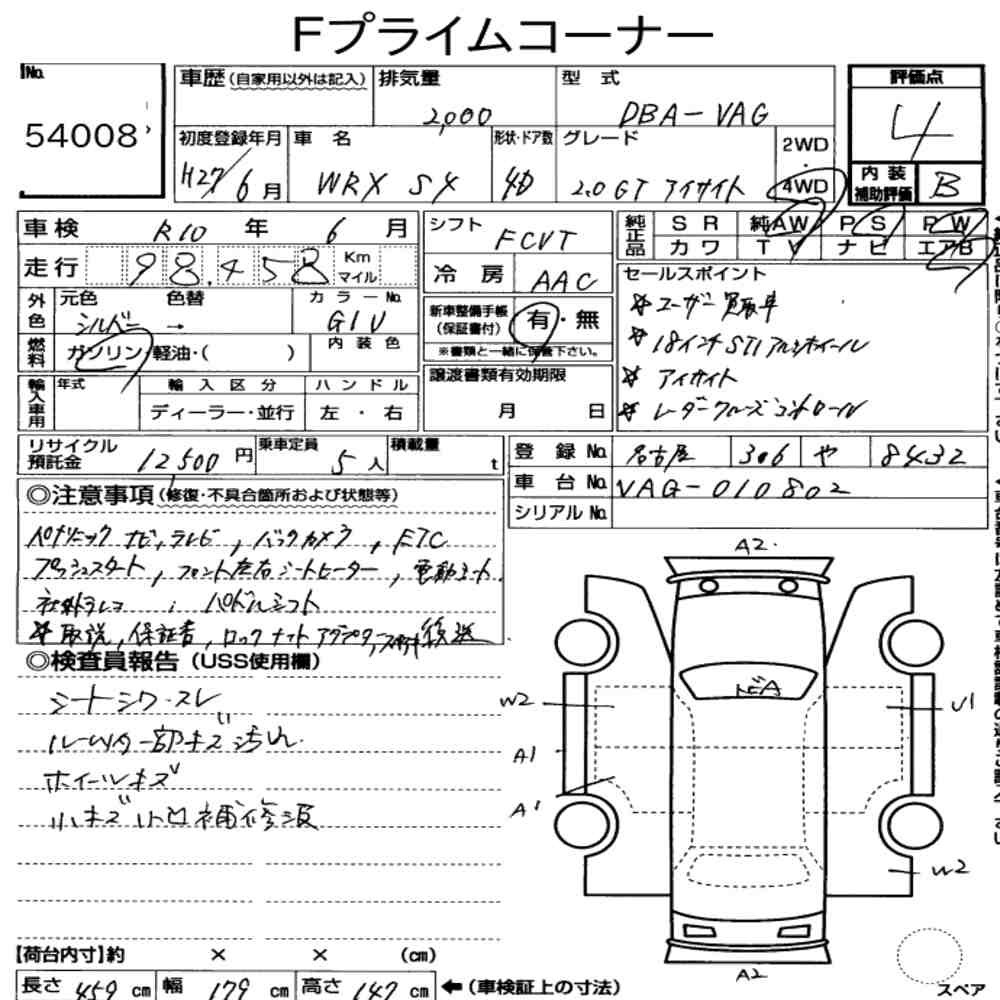 Fプライムコーナー
No.
54008
車歴 (自家用以外は記入)
排気量
2,000
型 式
DBA-VAG
評価点
4
初度登録年月
H27/6月
車 名
WRX S4
形状・ドア数
4D
グレード
2.0GT アイサイト
2WD
・
4WD
内装
補助評価
B
車検 R10 年 6 月
走行 98,458 Km
マイル
シフト
FCVT
冷 房 AAC
純正品 SR 純AW PS PW
カワ TV ナビ エアB
外色 元色 色替
シルバー →
カラーNo.
G1U
燃料 ガソリン・軽油・( )
内装色
新車整備手帳
(保証書付)
有・無
※書類と一緒に保管下さい。
セールスポイント
☆ ユーザー買取車
☆ 18インチSTIアルミホイール
☆ アイサイト
☆ レーダークルーズコントロール
輸入車用 年式 輸入区分 ハンドル
ディーラー・並行 左 ・ 右
譲渡書類有効期限
月 日
リサイクル
預託金 12,500 円
乗車定員
5 人
積載量
t
登 録 No. 名古屋 306 や 8432
車 台 No. VAG-010802
シリアル No.
◎注意事項 (修復・不具合箇所および状態等)
パナソニック ナビ,テレビ, バックカメラ, ETC
プッシュスタート, フロント左右シートヒーター, 電動シート
社外ドレコ , パドルシフト
☆ 取説, 保証書, ロックナットアダプター, 後送
◎検査員報告 (USS使用欄)
シートシワ・スレ
ルーム内一部キズ汚れ
ホイールキズ
小キズ小凹補修波
A2.
トビA
W2
A1
A1
U1
W2
A2
スペア
【荷台内寸】約 × × (cm)
長さ 459 cm 幅 179 cm 高さ 147 cm ←(車検証上の寸法)